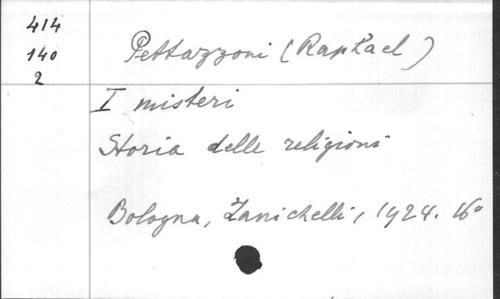 414
140
2
Pettazzoni (Raphael)
I misteri
Storia delle religioni
Bologna, Zanichelli, 1924. 16°